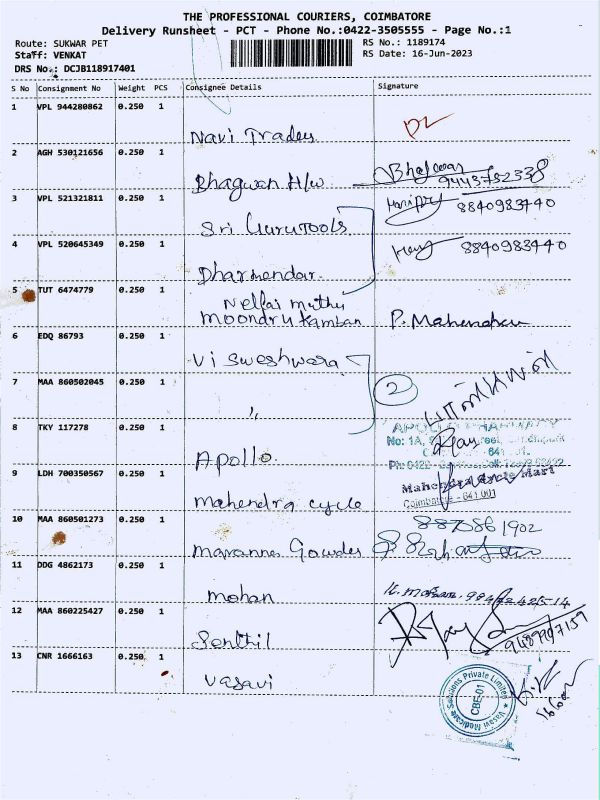 THE PROFESSIONAL COURIERS, COIMBATORE
Delivery Runsheet - PCT - Phone No.:0422-3505555 - Page No.:1
Route: SUKWAR PET
RS No.: 1189174
Staff: VENKAT
RS Date: 16-Jun-2023
DRS No.: DCJB118917401
S No Consignment No Weight PCS Consignee Details Signature
1 VPL 944280862 0.250 1
Navi Traders
2 AGH 530121656 0.250 1
Bhagwan H/w 9443752338
3 VPL 521321811 0.250 1
Sri Guru Tools 8840983440
4 VPL 520645349 0.250 1
Dharmendar 8840983440
5 TUT 6474779 0.250 1
Nellai muthu
moondru kamban P. Mahendran
6 EDQ 86793 0.250 1
Visweshwara
7 MAA 860502045 0.250 1
" 2
8 TKY 117278 0.250 1
APOLLO PHARMACY
No: 1A,
Apollo
9 LDH 700350567 0.250 1
Mahendra Cycle Mart
Coimbatore - 641 001
mahendra cycle
10 MAA 860501273 0.250 1
1902
Maranna Gowder
11 DDG 4862173 0.250 1
mohan K. mohan.
12 MAA 860225427 0.250 1
Senthil
13 CNR 1666163 0.250 1
Vasavi
Vasavi Medicate Solutions Private Limited
CBE-01